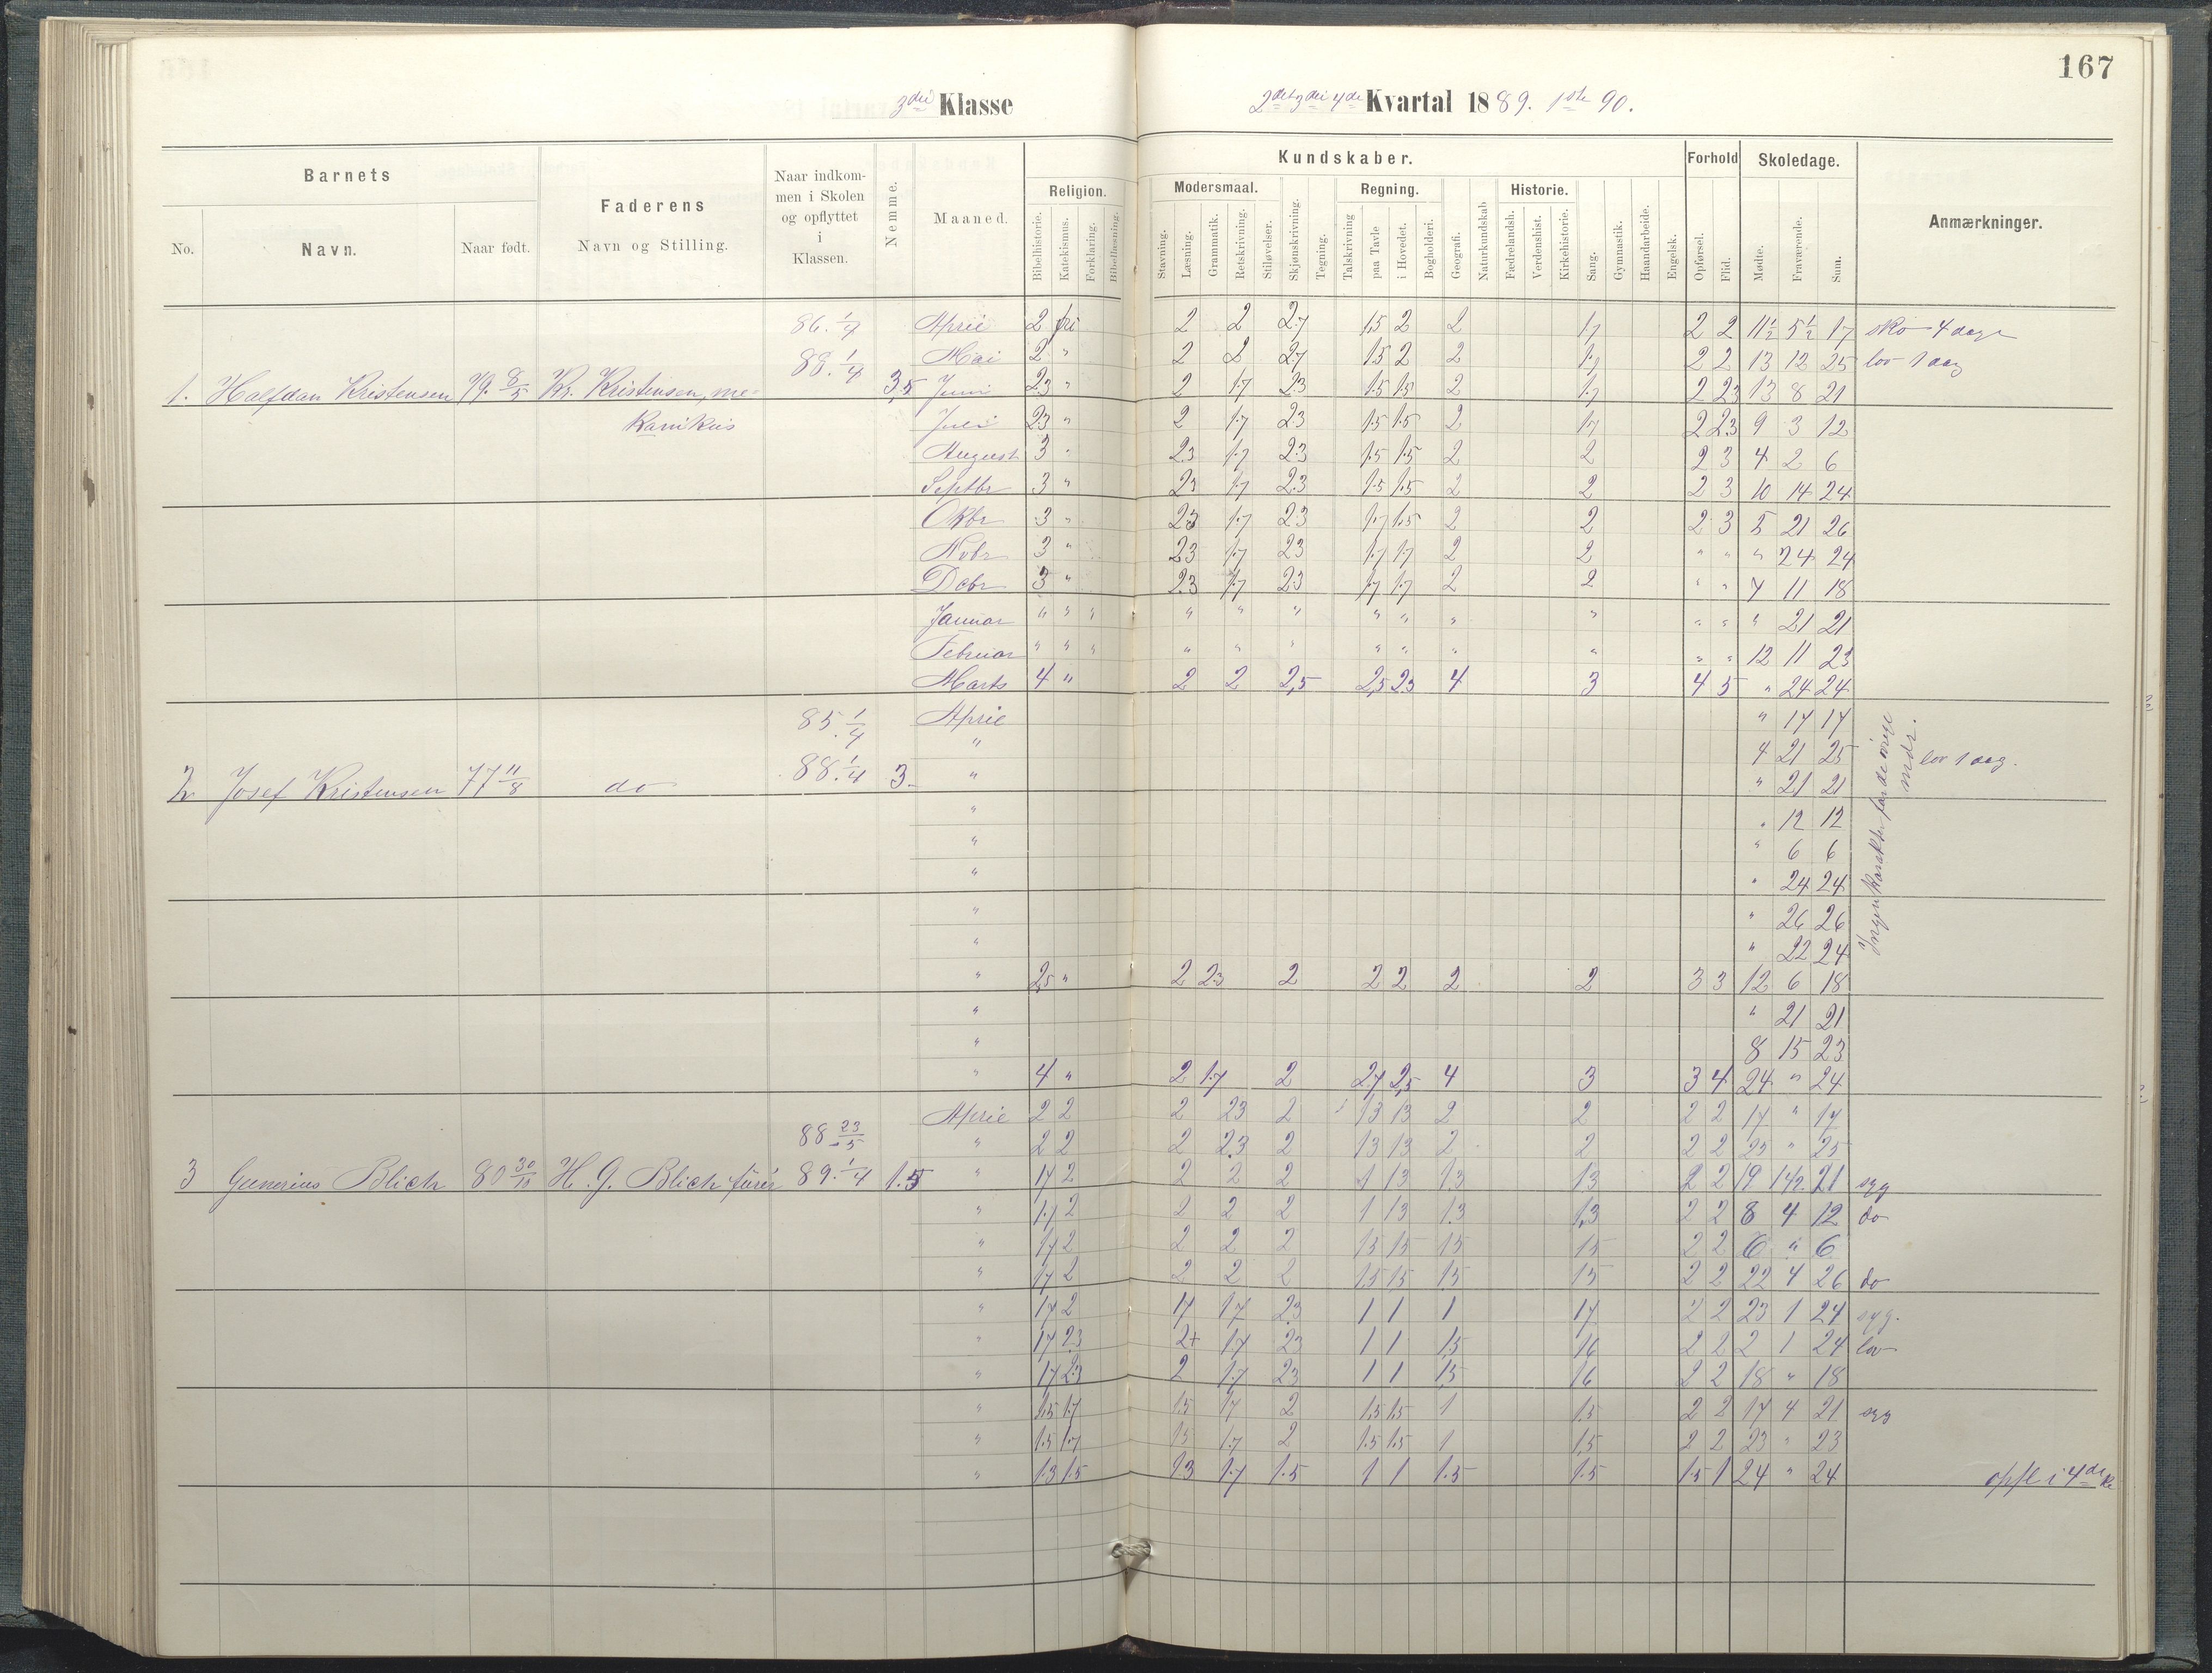 167
3die Klasse 2det 3die 4de Kvartal 1889. 1ste 90.
Barnets Faderens Naar indkom- men i Skolen og opflyttet i Klassen. Nemme. Maaned. Religion. Kundskaber. Forhold Skoledage. Anmærkninger.
No. Navn. Naar født. Navn og Stilling. Modersmaal. Regning. Historie.
Bibelhistorie. Katekismus. Forklaring. Bibellæsning. Stavning. Læsning. Grammatik. Retskrivning. Stiløvelser. Skjønskrivning. Tegning. Talskrivning paa Tavle i Hovedet. Bogholderi. Geografi. Naturkundskab Fædrelandsh. Verdenshist. Kirkehistorie. Sang. Gymnastik. Haandarbeide. Engelsk. Opførsel. Flid. Mødte. Fraværende. Sum.
86. 1/4 April 2 fri 2 2 2.7 1.5 2 2 1.7 2 2 11½ 5½ 17 sko 4 dage
88. 1/4 Mai 2 " 2 2 2.7 1.5 2 2 1.7 2 2 13 12 25 lov 1 dag
1. Halfdan Kristensen 79. 8/5 Kr. Kristensen, me- 3,5 Juni 2.3 " 2 1.7 2.3 1.5 1.5 2 1.7 2 2.3 13 8 21
kanikus Juli 2.3 " 2 1.7 2.3 1.5 1.5 2 1.7 2 2.3 9 3 12
August 3 " 2.3 1.7 2.3 1.5 1.5 2 2 2 3 4 2 6
Septbr 3 " 2.3 1.7 2.3 1.5 1.5 2 2 2 3 10 14 24
Okbr 3 " 2.3 1.7 2.3 1.7 1.5 2 2 2 3 5 21 26
Nvbr 3 " 2.3 1.7 2.3 1.7 1.7 2 2 " " " 24 24
Dcbr 3 " 2.3 1.7 2.3 1.7 1.7 2 2 " " 7 11 18
Januar " " " " " " " " " " " " " 21 21
Februar " " " " " " " " " " " " 12 11 23
Marts 4 " 2 2 2,5 2,5 2.3 4 3 4 5 " 24 24
85 1/4 April " 17 17
" 4 21 25 lov 1 dag.
2 Josef Kristensen 77 11/8 do 88. 1/4 3. " " 21 21
" " 12 12
" " 6 6
" " 24 24
" " 26 26
" " 22 24
Ingen karakter for de øvrige mndr.
" 2,5 " 2 2.3 2 2 2 2 2 3 3 12 6 18
" " 21 21
" 8 15 23
" 4 " 2 1.7 2 2.7 2,5 4 3 3 4 24 " 24
April 2 2 2 2.3 2 1.3 1.3 2 2 2 2 17 " 17
88 23/5 " 2 2 2 2.3 2 1.3 1.3 2 2 2 2 25 " 25
3 Gunerius Blich 80 30/10 H. G. Blich furér 89. 1/4 1.5 " 1.7 2 2 2 2 1 1.3 1.3 1.3 2 2 19 1½ 21 syg
" 1.7 2 2 2 2 1 1.3 1.3 1.3 2 2 8 4 12 do
" 1.7 2 2 2 2 1.5 1.5 1.5 1.5 2 2 6 " 6
" 1.7 2 2 2 2 1.5 1.5 1.5 1.5 2 2 22 4 26 do
" 1.7 2 1.7 1.7 2.3 1 1 1 1.7 2 2 23 1 24 syg.
" 1.7 2.3 2+ 1.7 2.3 1 1 1.5 1.6 2 2 2 1 24 lov
" 1.7 2.3 2 1.7 2.3 1 1 1.5 1.6 2 2 18 " 18
" 1.5 1.7 1.5 1.7 2 1.5 1.5 1 1.5 2 2 17 4 21 syg
" 1.5 1.7 1.5 1.7 2 1.5 1.5 1 1.5 2 2 23 " 23
" 1.3 1.5 1.3 1.7 1.5 1 1 1.5 1.5 1.5 1 24 " 24 opfl i 4de kl